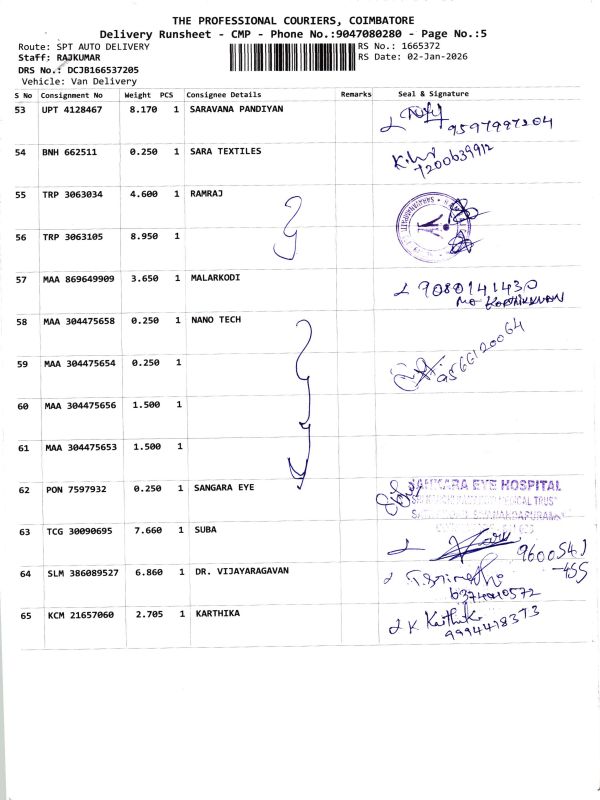 THE PROFESSIONAL COURIERS, COIMBATORE
Delivery Runsheet - CMP - Phone No.:9047080280 - Page No.:5
Route: SPT AUTO DELIVERY RS No.: 1665372
Staff: RAJKUMAR RS Date: 02-Jan-2026
DRS No.: DCJB166537205
Vehicle: Van Delivery
S No Consignment No Weight PCS Consignee Details Remarks Seal & Signature
53 UPT 4128467 8.170 1 SARAVANA PANDIYAN
9597997204
54 BNH 662511 0.250 1 SARA TEXTILES
7200639912
55 TRP 3063034 4.600 1 RAMRAJ
56 TRP 3063105 8.950 1
57 MAA 869649909 3.650 1 MALARKODI
9080141430
58 MAA 304475658 0.250 1 NANO TECH
9566120064
59 MAA 304475654 0.250 1
60 MAA 304475656 1.500 1
61 MAA 304475653 1.500 1
62 PON 7597932 0.250 1 SANGARA EYE
SANKARA EYE HOSPITAL
63 TCG 30090695 7.660 1 SUBA
64 SLM 386089527 6.860 1 DR. VIJAYARAGAVAN
65 KCM 21657060 2.705 1 KARTHIKA
K Karthika
9994418373